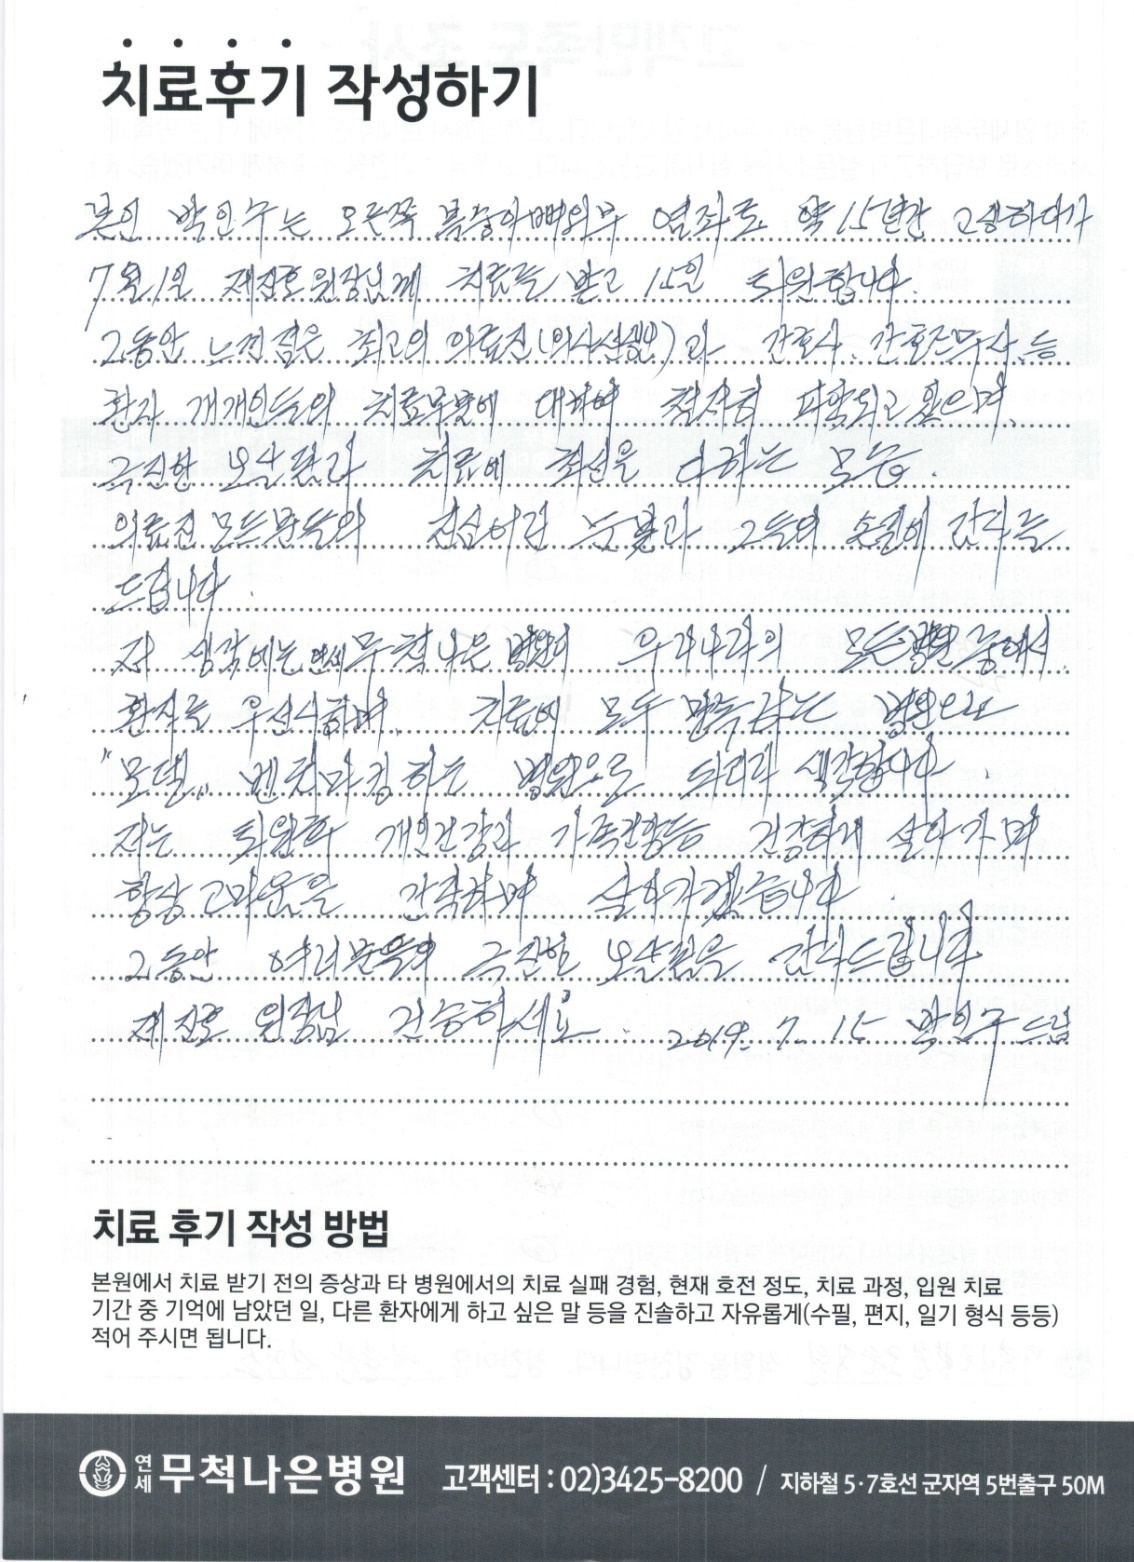 치료후기 작성하기
본인 박인수는 오른쪽 복숭아뼈외부 염좌로 약 15년간 고생하다가
7월1일 제진호원장님께 치료를 받고 15일 퇴원합니다.
그동안 느낀점은 최고의 의료진(의사선생님)과 간호사, 간호조무사 등
환자 개개인들의 치료부분에 대하여 철저히 파악되고 있으며,
극진한 보살핌과 치료에 최선을 다하는 모습.
의료진 모든분들의 진심어린 눈빛과 그들의 손길에 감사를
드립니다.
저 생각에는 연세무척나은 병원이 우리나라의 모든병원중에서
환자를 우선시하며, 치료에 모두 만족하는 병원으로
"모델" 벤치마킹하는 병원으로 되리라 생각합니다.
저는 퇴원후 개인건강과 가족건강등 건강하게 살아가며
항상 고마움을 간직하며 살아가겠습니다
그동안 여러분들의 극진한 보살핌을 감사드립니다
제진호 원장님 건승하세요. 2019. 7. 15 박인수 드림
치료 후기 작성 방법
본원에서 치료 받기 전의 증상과 타 병원에서의 치료 실패 경험, 현재 호전 정도, 치료 과정, 입원 치료
기간 중 기억에 남았던 일, 다른 환자에게 하고 싶은 말 등을 진솔하고 자유롭게(수필, 편지, 일기 형식 등등)
적어 주시면 됩니다.
연세 무척나은병원 고객센터 : 02)3425-8200 / 지하철 5·7호선 군자역 5번출구 50M